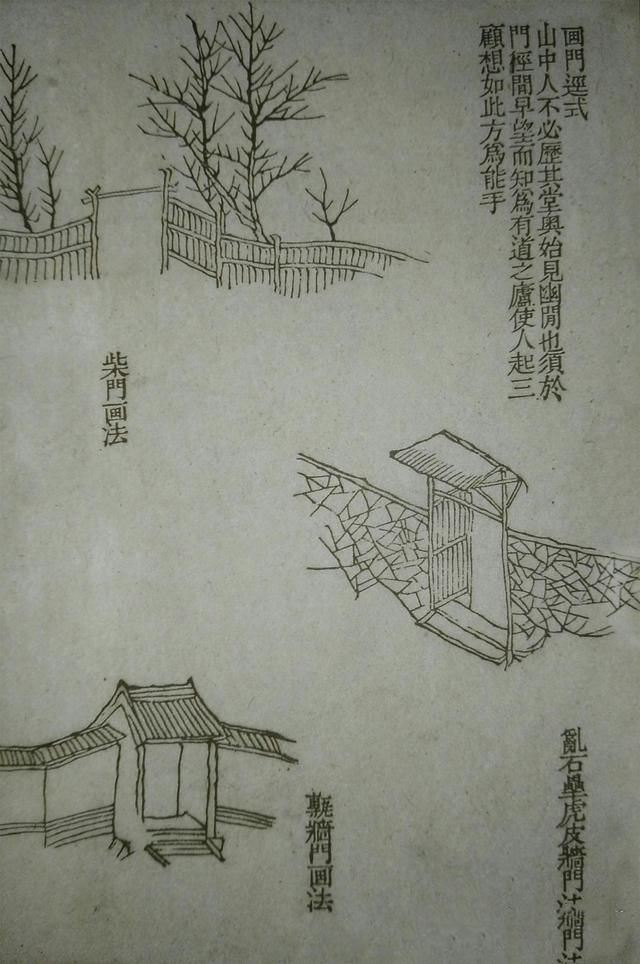 画門逕式
山中人不必歷其堂奧始見幽閒也須於
門徑間早望而知為有道之廬使人起三
顧想如此方為能手
柴門画法
亂石壘虎皮牆門法
牆門画法